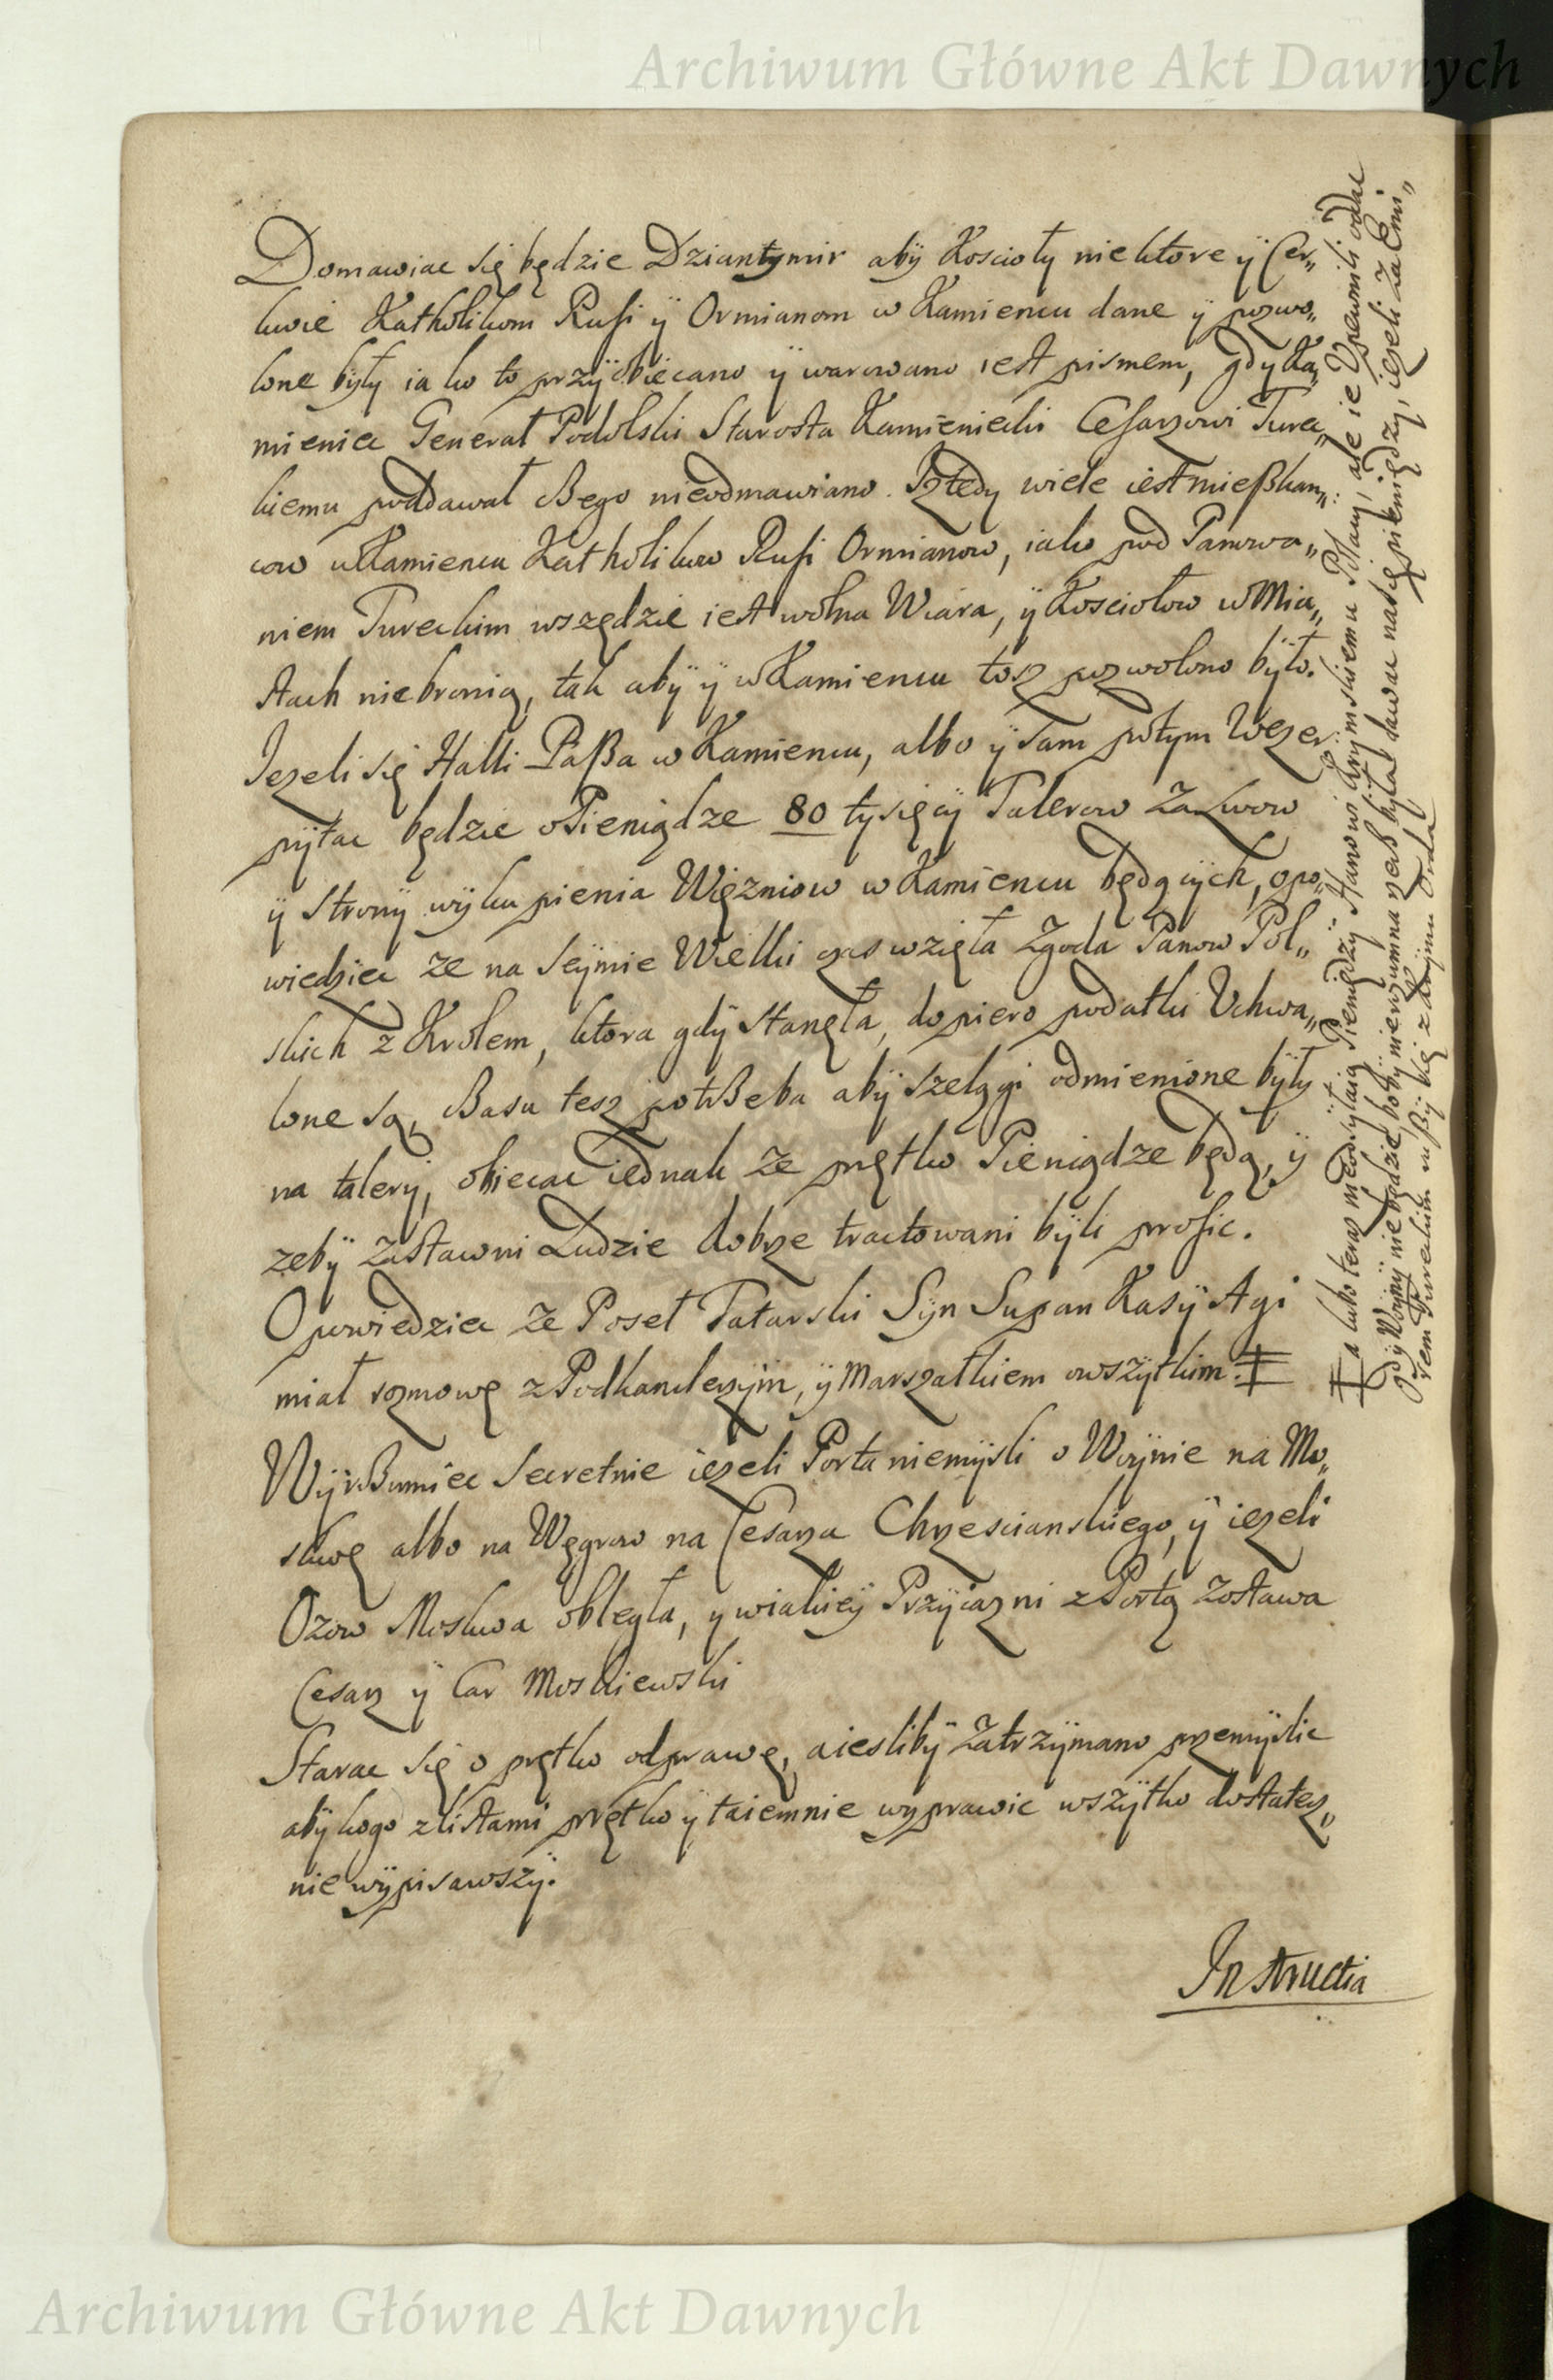 Archiwum Główne Akt Dawnych
Domawiac się będzie Dziantymir abÿ Koscioły niektore ÿ Cer„
kwie Katholikom Rusi ÿ Ormianom w Kamiencu dane ÿ pozwo„
lone bÿły iako to przÿobiecano ÿ warowano iest pismem, gdy Ka„
mieniec Generał Podolski Starosta Kamieniecki Cesarzowi Turec„
kiemu poddawał czego nieodmawiano. Iż tedy wiele iest mieszkan„
cow w Kamiencu Katholikow Rusi Ormianow, iako pod Panowa„
niem Tureckim wszędzie iest wolna Wiara, ÿ Kosciołow w Mia„
stach niebronią, tak abÿ ÿ w Kamiencu tosz pozwolono bÿło.
Iezeli się Halli Pasza w Kamiencu, albo ÿ sam potym Wezer
pÿtac będzie o Pieniądze 80 tysięcÿ Talerow za Lwow
ÿ stronÿ wÿkupienia Więzniow w Kamiencu będącÿch, opo„
wiedziec ze na Seÿmie Wielki czas wzięła Zgoda Panow Pol„
skich z Krolem, ktora gdÿ stanęła, dopiero podatki Vchwa„
lone są, czasu tesz potrzeba abÿ szelągi odmienione bÿły
na talerÿ, obiecac iednak ze prętko Pieniądze będą, ÿ
zebÿ zastawni Ludzie dobrze tractowani bÿli prosic.
Opowiedziec ze Poseł Tatarski Sÿn Supan Kasÿ Agi
miał rozmowę z Podkanclerzÿm, ÿ Marszałkiem owszÿtkim. ‡
Wÿrozumiec Secretnie iezeli Porta niemÿsli o Woÿnie na Mo„
skwę albo na Węgrow na Cesarza Chrzescianskiego, ÿ iezeli
Ozow Moskwa obległa, ÿ wiakieÿ Przÿiazni z Portą zostawa
Cesarz ÿ Car Moskiewski
Starac się o prętko odprawę, a ieslibÿ zatrzÿmano przemÿslic
abÿ kogo z listami prętko ÿ taiemnie wyprawic wszÿtko dostatecz„
nie wÿpisawszÿ.
Instructia
‡ a lubo teraz nieodsÿłaią Pieniędzÿ Hanowi Krymskiemu Posłanÿ, ale ie Vpewnili oddac
gdÿ Woÿnÿ nie będzie bo bÿ nierozumna rzecz bÿła dawac na się pieniędzy, iezeli za Emi„
rem Tureckim ruszÿ się z Krÿmu Orda
Archiwum Główne Akt Dawnych